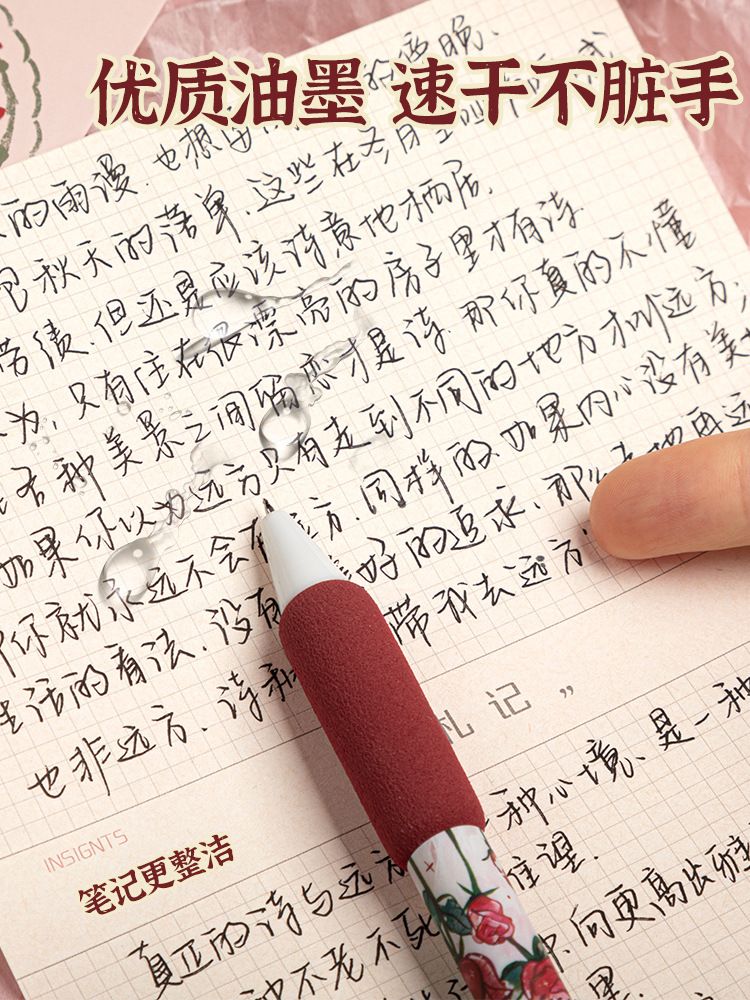 优质油墨 速干不脏手
的雨漫.也想
秋天的落单.这些在冬月
劳绩.但还是应该诗意地栖居.
为,只有住在很漂亮的房子里才有诗.
各种美景之间留恋才是诗.那你真的不懂
如果你以为远方只有走到不同的地方才叫远方,
那你就永远不会有远方.同样的.如果内心没有美
生活的看法.没有 好的追求.那么 地再远
也非远方.诗和 带我去远方
札记”
INSIGNTS
种心境、是一种
笔记更整洁
真正的诗与远方 住望.
种不老不死 向更高出